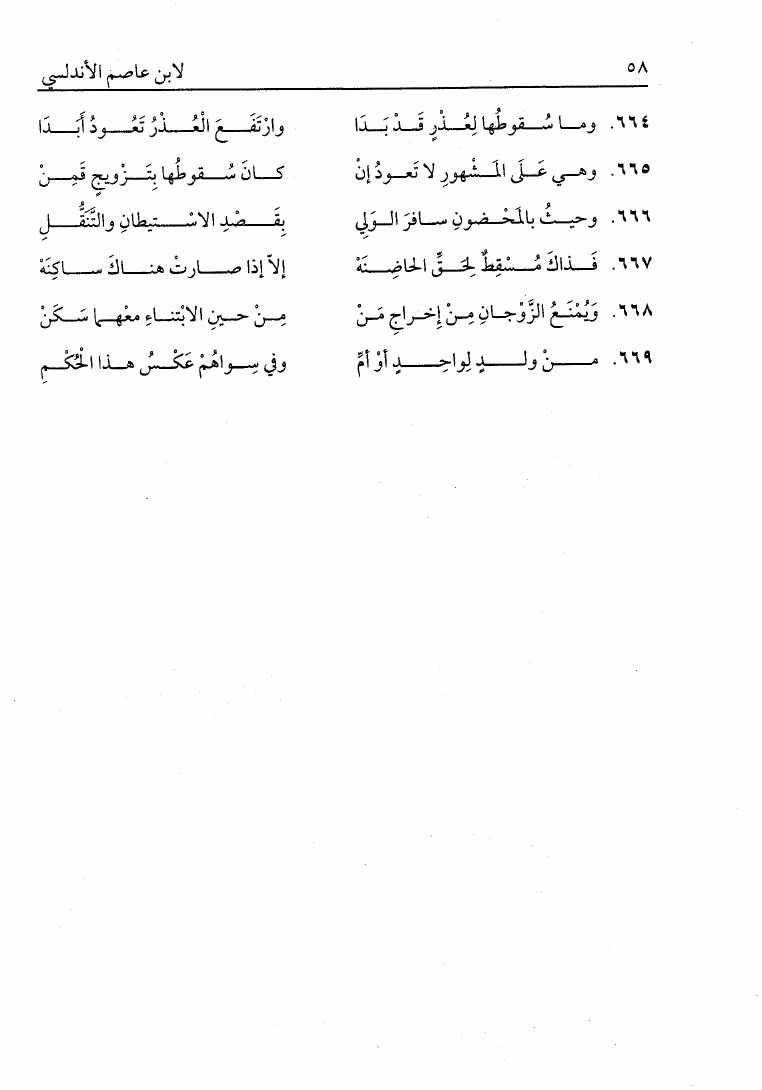 ٥٨ لابن عاصم الأندلسي
٦٦٤. وما سُقوطُها لِعُذرٍ قَدْ بَدَا وارْتَفَعَ الْعُذْرُ تَعُودُ أَبَدَا
٦٦٥. وهي عَلَى المَشْهورِ لا تَعودُ إنْ كانَ سُقوطُها بِتَزويجٍ قَمِنْ
٦٦٦. وحيثُ بالمَحْضونِ سافرَ الوَلِي بِقَصْدِ الاسْتيطانِ والتَّنَقُّلِ
٦٦٧. فَذاكَ مُسْقِطٌ لِحَقِّ الحاضِنَهْ إلاّ إذا صارتْ هناكَ ساكِنَهْ
٦٦٨. وَيُمْنَعُ الزَّوْجانِ مِنْ إخراجِ مَنْ مِنْ حينِ الابْتناءِ معْهما سَكَنْ
٦٦٩. منْ ولدٍ لواحِدٍ أوْ أمِّ وفي سِواهُمْ عَكْسُ هذا الحُكْمِ